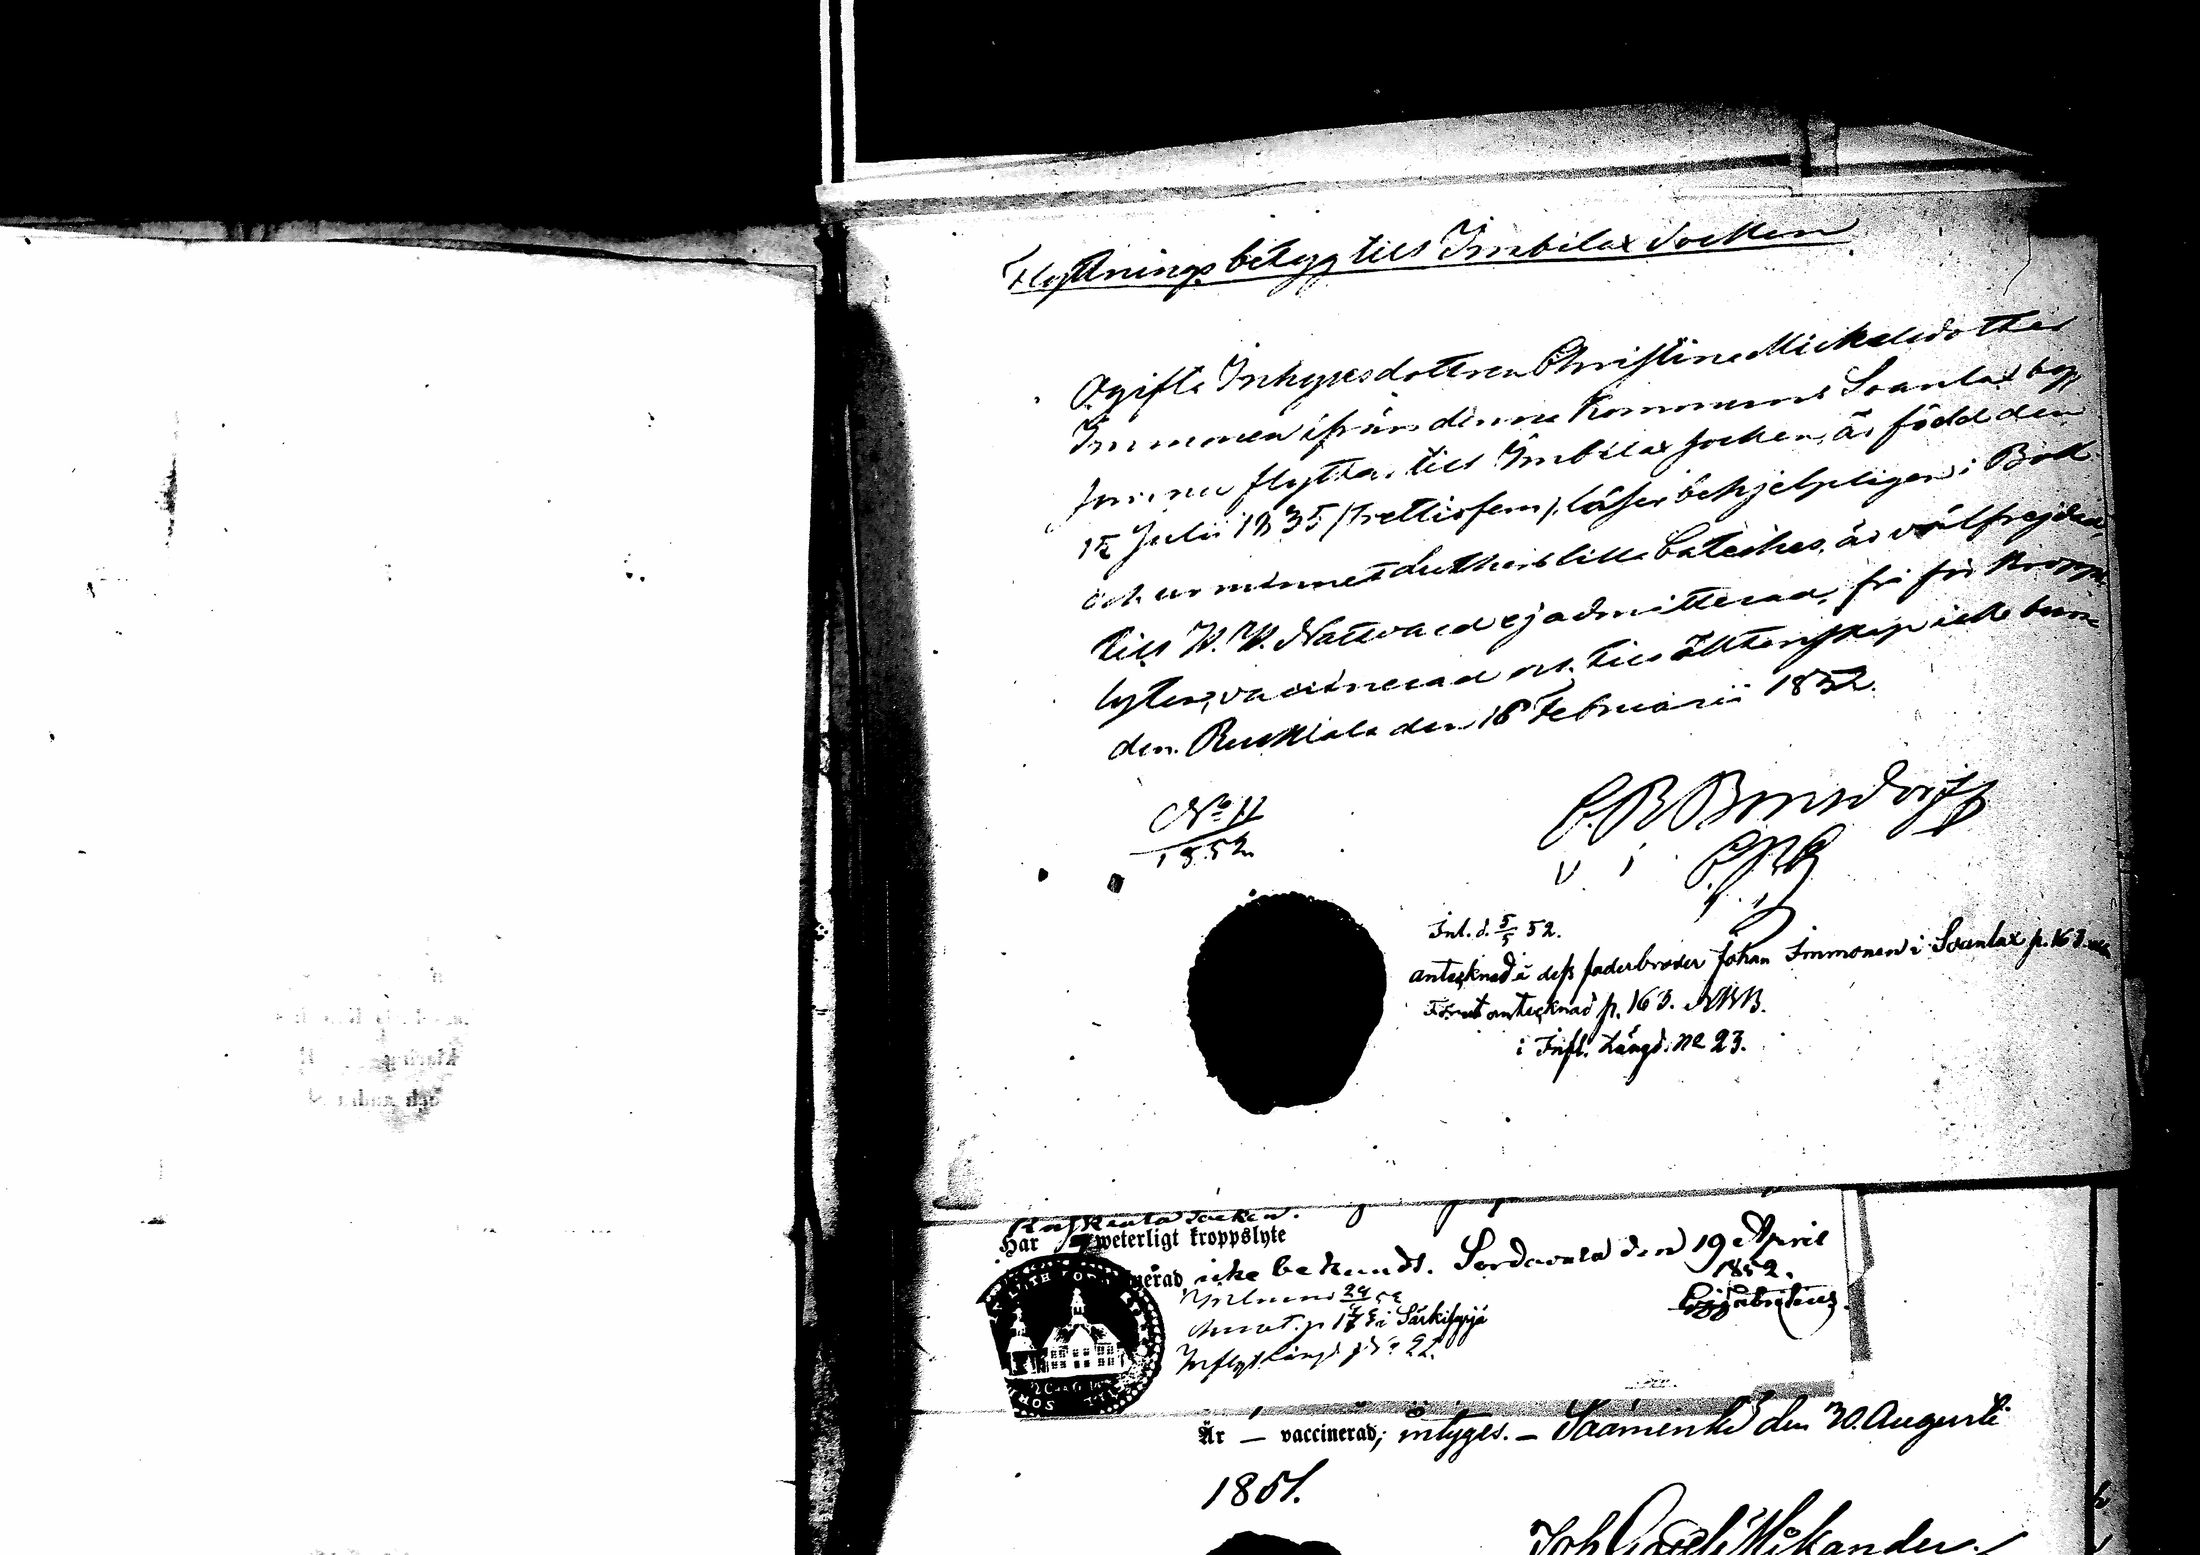 Flyttningsbetyg till Imbilax Socken
Ogifta Inhysesdottren Christina Michelsdotter
Immonen ifrån denna Kommuns Soanlax by
som nu flyttar till Imbilax socken, är född den
15 Julii 1835 (trettiofem), läser behjelpligen i Bok
och ur minnet Luthers lilla Cateches, är välfrejdad,
till H. H. Nattvard ej admitterad, fri för kropps
lyten, vaccinerad och till Ektenskap icke bun
den. Ruskiala den 18 Februarii 1852.
No 11
1852
C. R. Bonsdorff
v i
Inl. d. 5/5 52.
antecknad i dess faderbroder Johan Immonen i Soanlax p. 163
Förut antecknad p. 163. NB.
i Infl. Längd. No 23.
Ruskeala Socken.
Har weterligt kroppslyte
nerad, icke bekandt. Sordavala den 19 April
1852.
Inflytt längd No 22.
i Särkisyrjä
Är — vaccinerad; intygas. — Sääminki den 30. Augusti
1851.
Joh Mikander